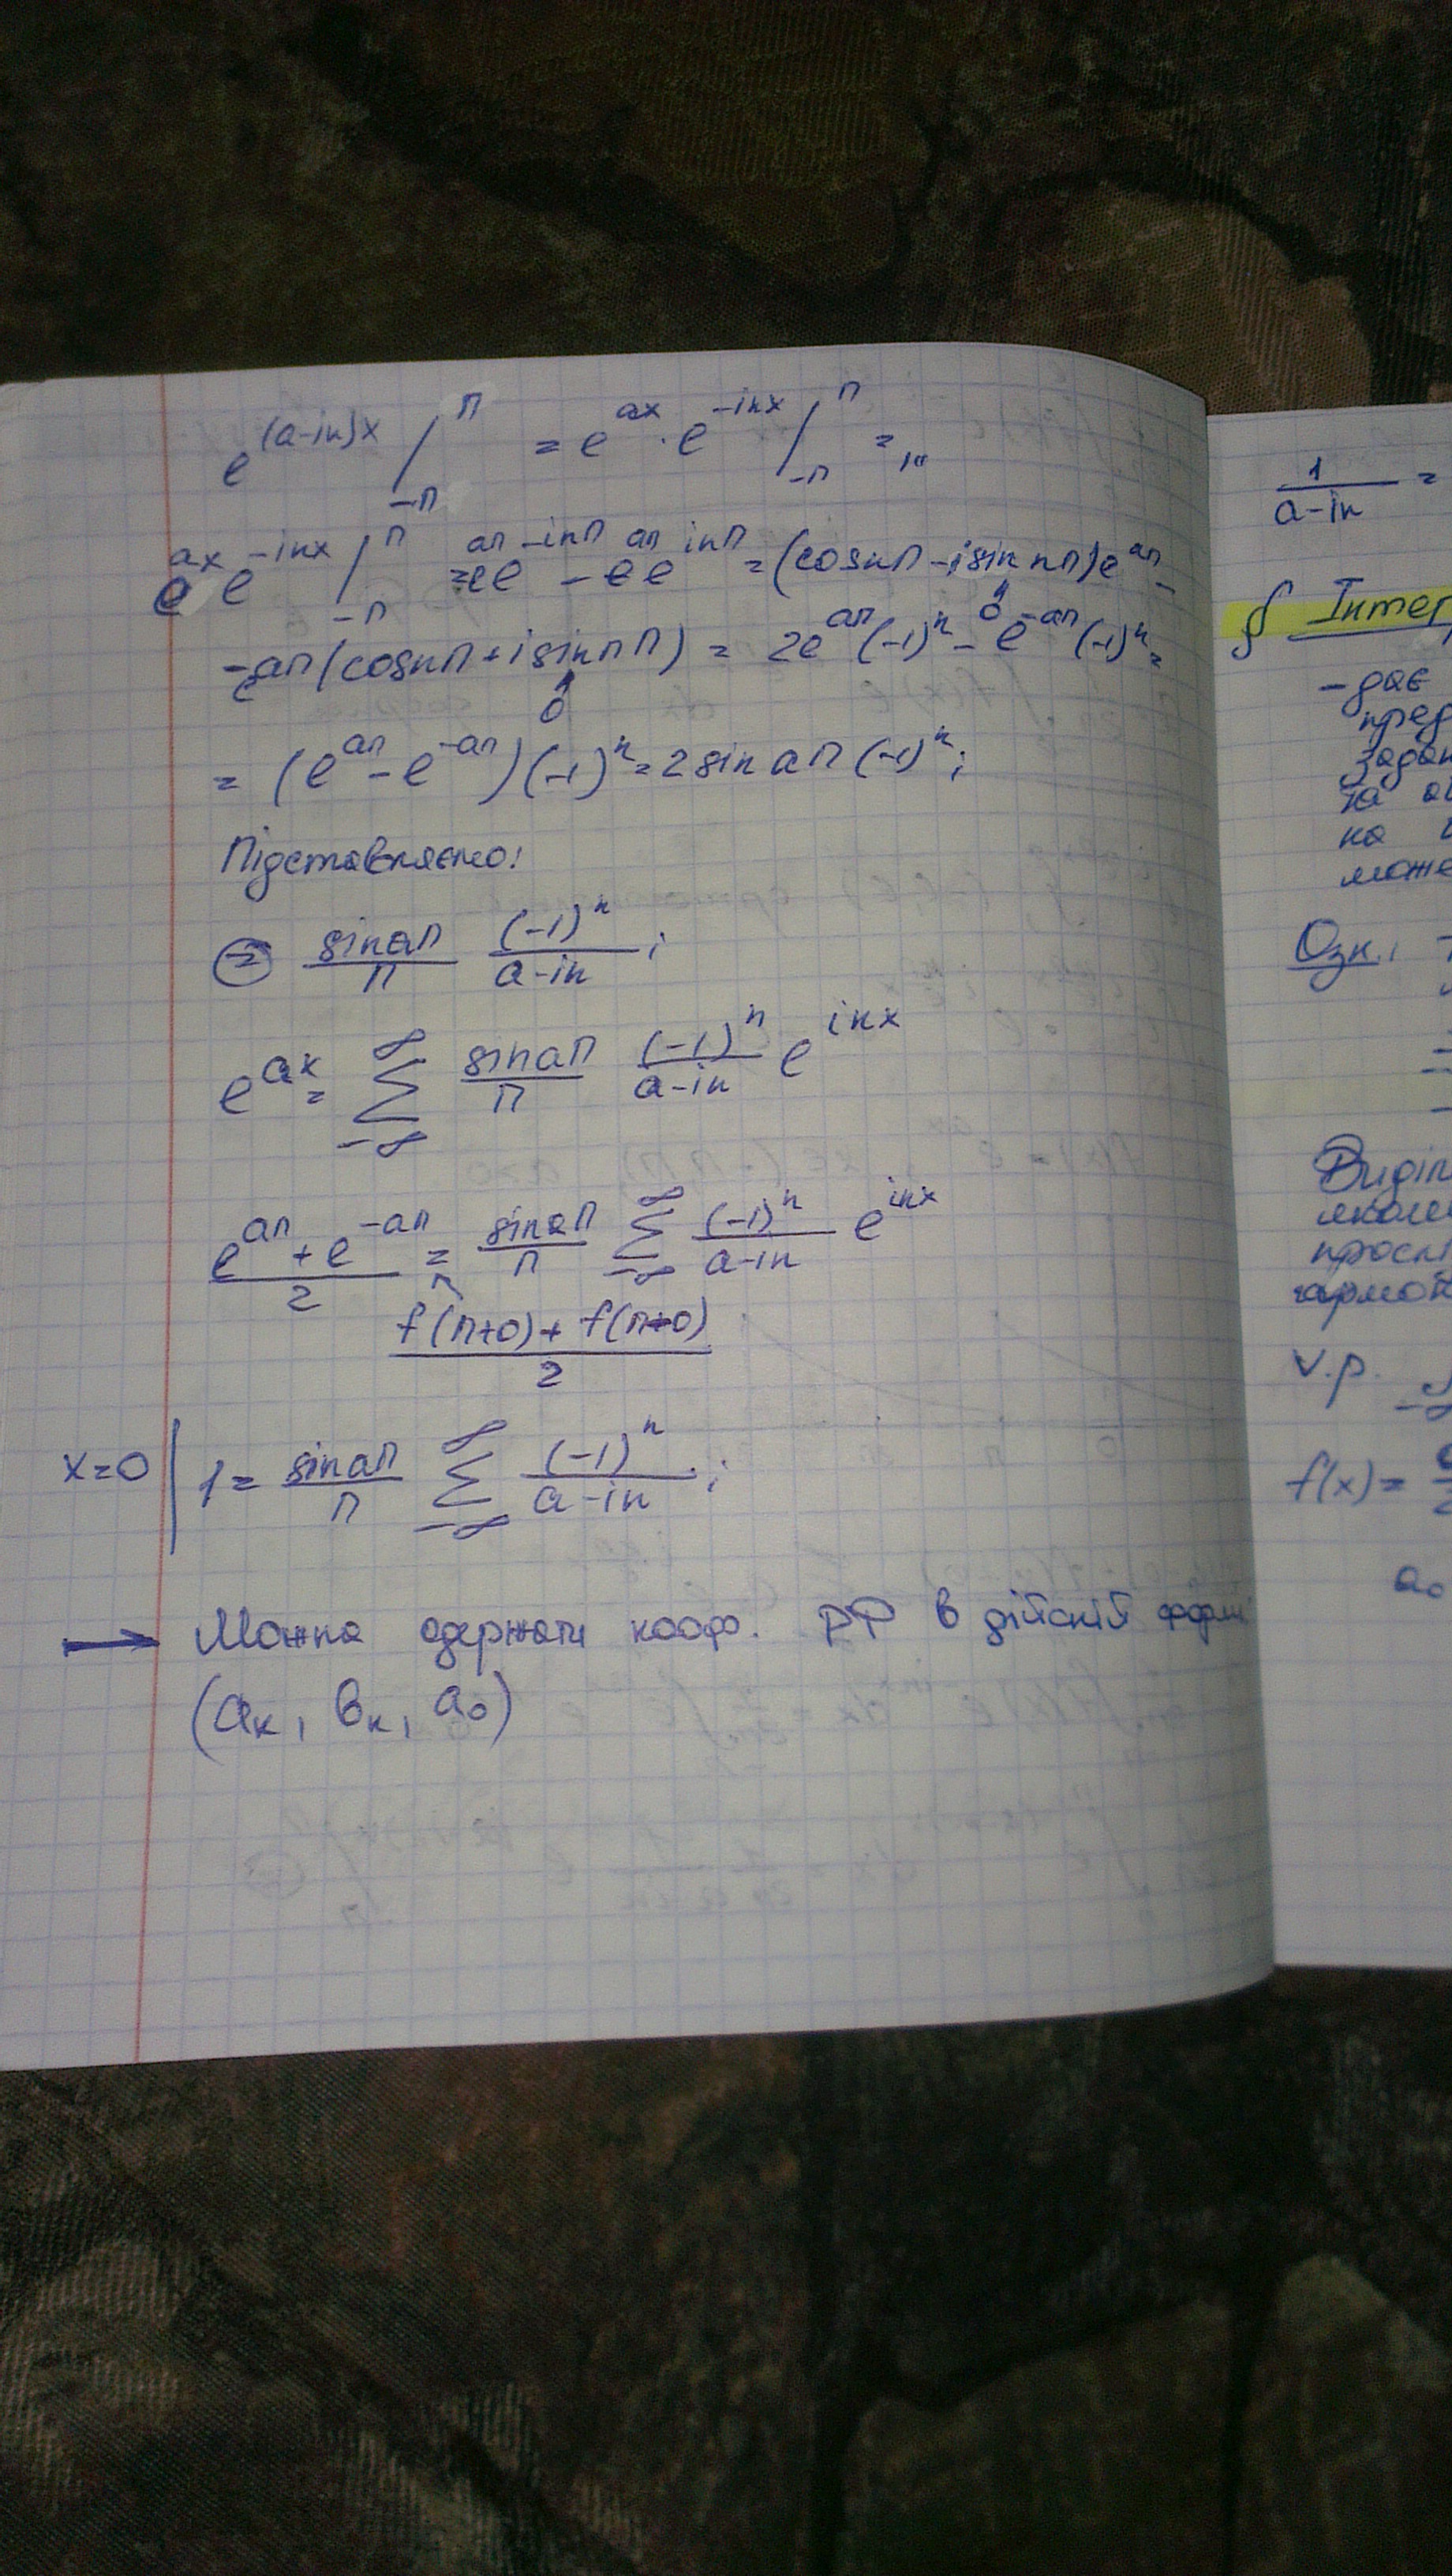 e^{(a-in)x} /_{-π}^{π} = e^{ax} · e^{-inx} /_{-π}^{π} = ...
e^{ax} e^{-inx} /_{-π}^{π} = e^{aπ} e^{-inπ} - e^{aπ} e^{inπ} = (cos nπ - i sin nπ) e^{aπ} -
0
- e^{-aπ} (cos nπ + i sin nπ) = 2e^{aπ} (-1)^n - e^{-aπ} (-1)^n =
0
= (e^{aπ} - e^{-aπ}) (-1)^n = 2 sin aπ (-1)^n ;
Підставляємо:
⊜ \frac{sin aπ}{π} \frac{(-1)^n}{a-in} ;
e^{ax} = ∑_{-∞}^{∞} \frac{sin aπ}{π} \frac{(-1)^n}{a-in} e^{inx}
\frac{e^{aπ} + e^{-aπ}}{2} = \frac{sin aπ}{π} ∑_{-∞}^{∞} \frac{(-1)^n}{a-in} e^{inx}
\frac{f(π+0) + f(π-0)}{2}
x=0 | 1 = \frac{sin aπ}{π} ∑_{-∞}^{∞} \frac{(-1)^n}{a-in} ;
→ Можна одержати коеф. РФ в дійсній формі
(a_к, b_к, a_0)
\frac{1}{a-in} =
§ Інтег
- дає
пред
задан
на
на
може
Озн.:
Видін
яколи
v.p.
f(x) =
a_0